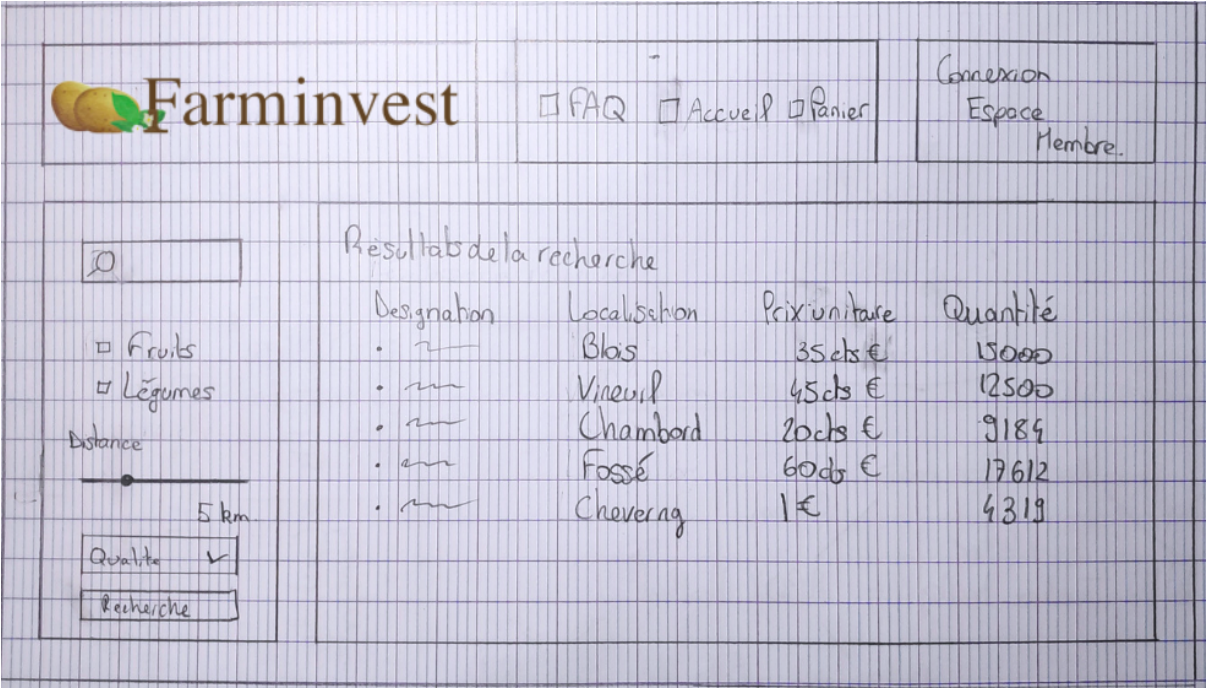 Farminvest
FAQ Accueil Panier
Connexion
Espace
Membre.
Fruits
Légumes
Distance
5 km
Qualite
Recherche
Résultats de la recherche
Designation Localisation Prix unitaire Quantité
Blois 35 cts € 15000
Vineuil 45 cts € 12500
Chambord 20 cts € 9184
Fossé 60 cts € 17612
Cheverny 1 € 4319